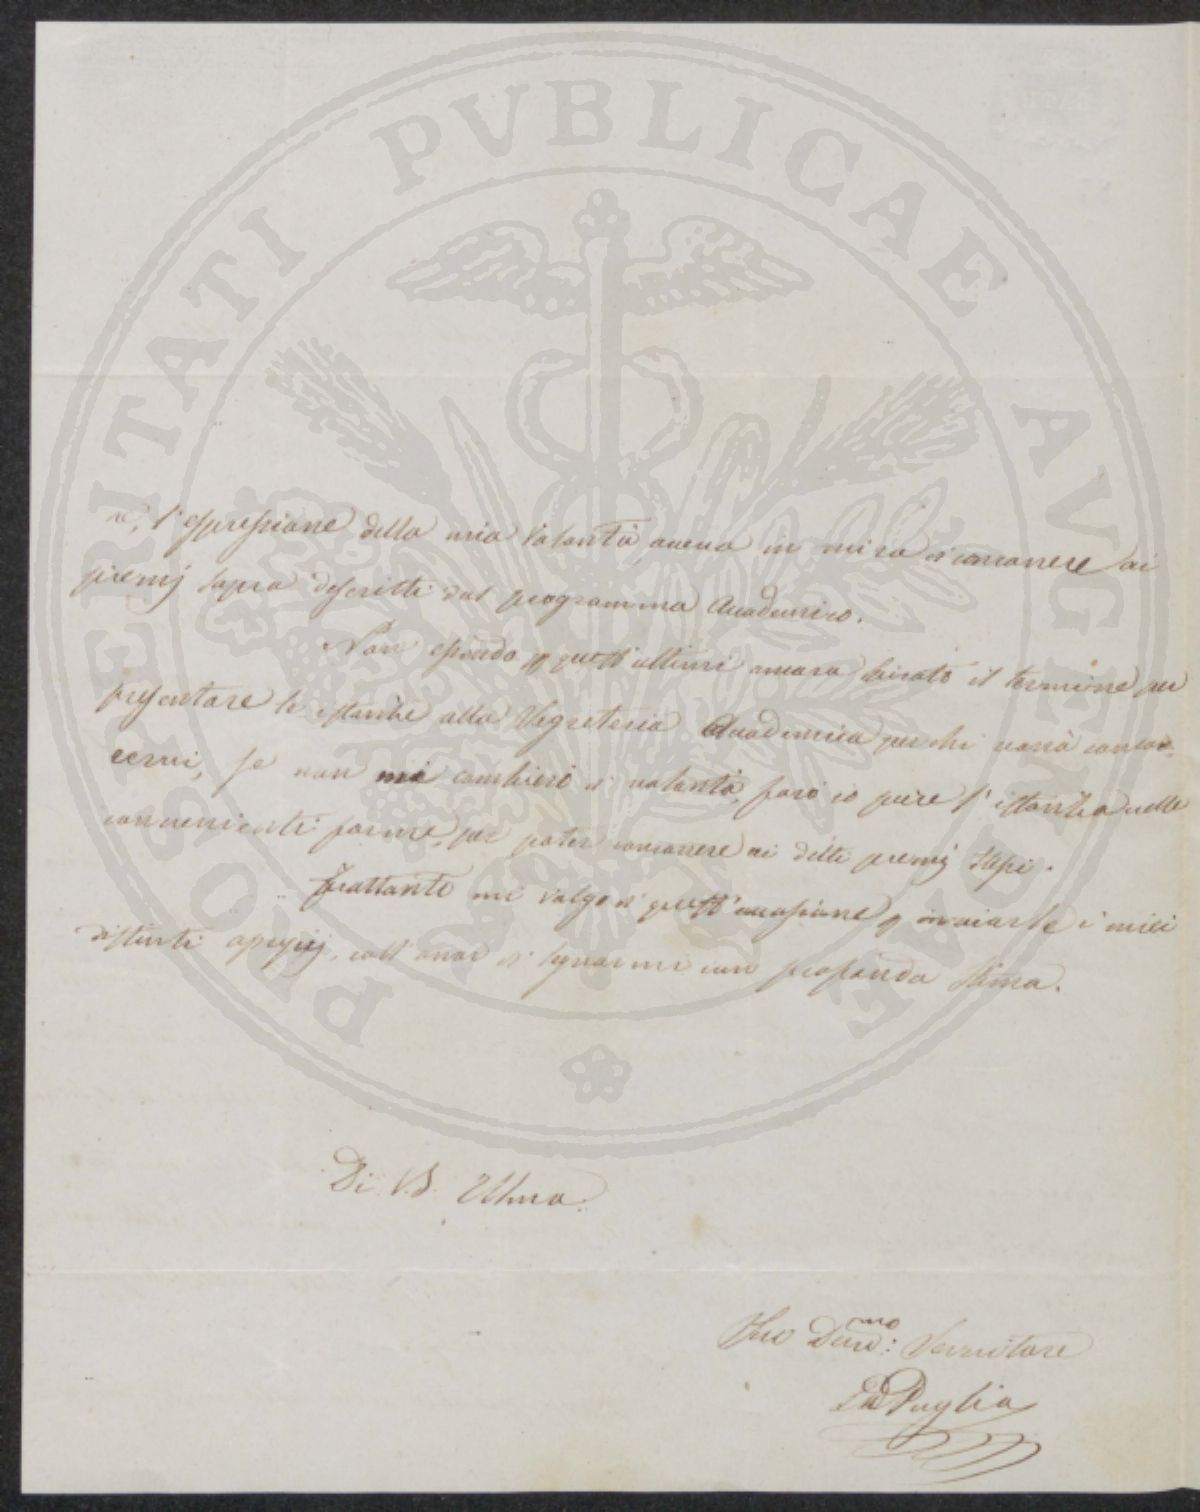 PROSPERITATI PVBLICAE AVGENDAE
re, l'espressione della mia volontà, aveva in mira di concorrere ai
premj sopra descritti dal programma Accademico.
Non essendo p quest'ultimi ancora spirato il termine per
presentare le istanze alla Segreteria Accademica per chi vorrà concor-
rervi, se non mi cambierò di volontà, farò io pure l'istanza nelle
convenienti forme, per poter concorrere ai detti premj stessi.
Frattanto mi valgo di quest'occasione p inviarle i miei
distinti ossequj, coll'onor di segnarmi con profonda stima.
Di V.S. Illma.
Suo Devmo: Servitore
Puglia